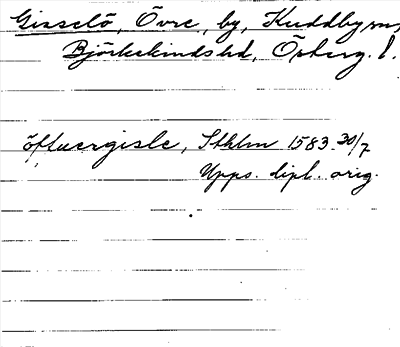 Gisselö, Övre, by, Kuddby sn,
Björkekinds hd, Öpberg. l.
öffuergisle, Sthlm 1583 30/7
Upps. dipl. orig.